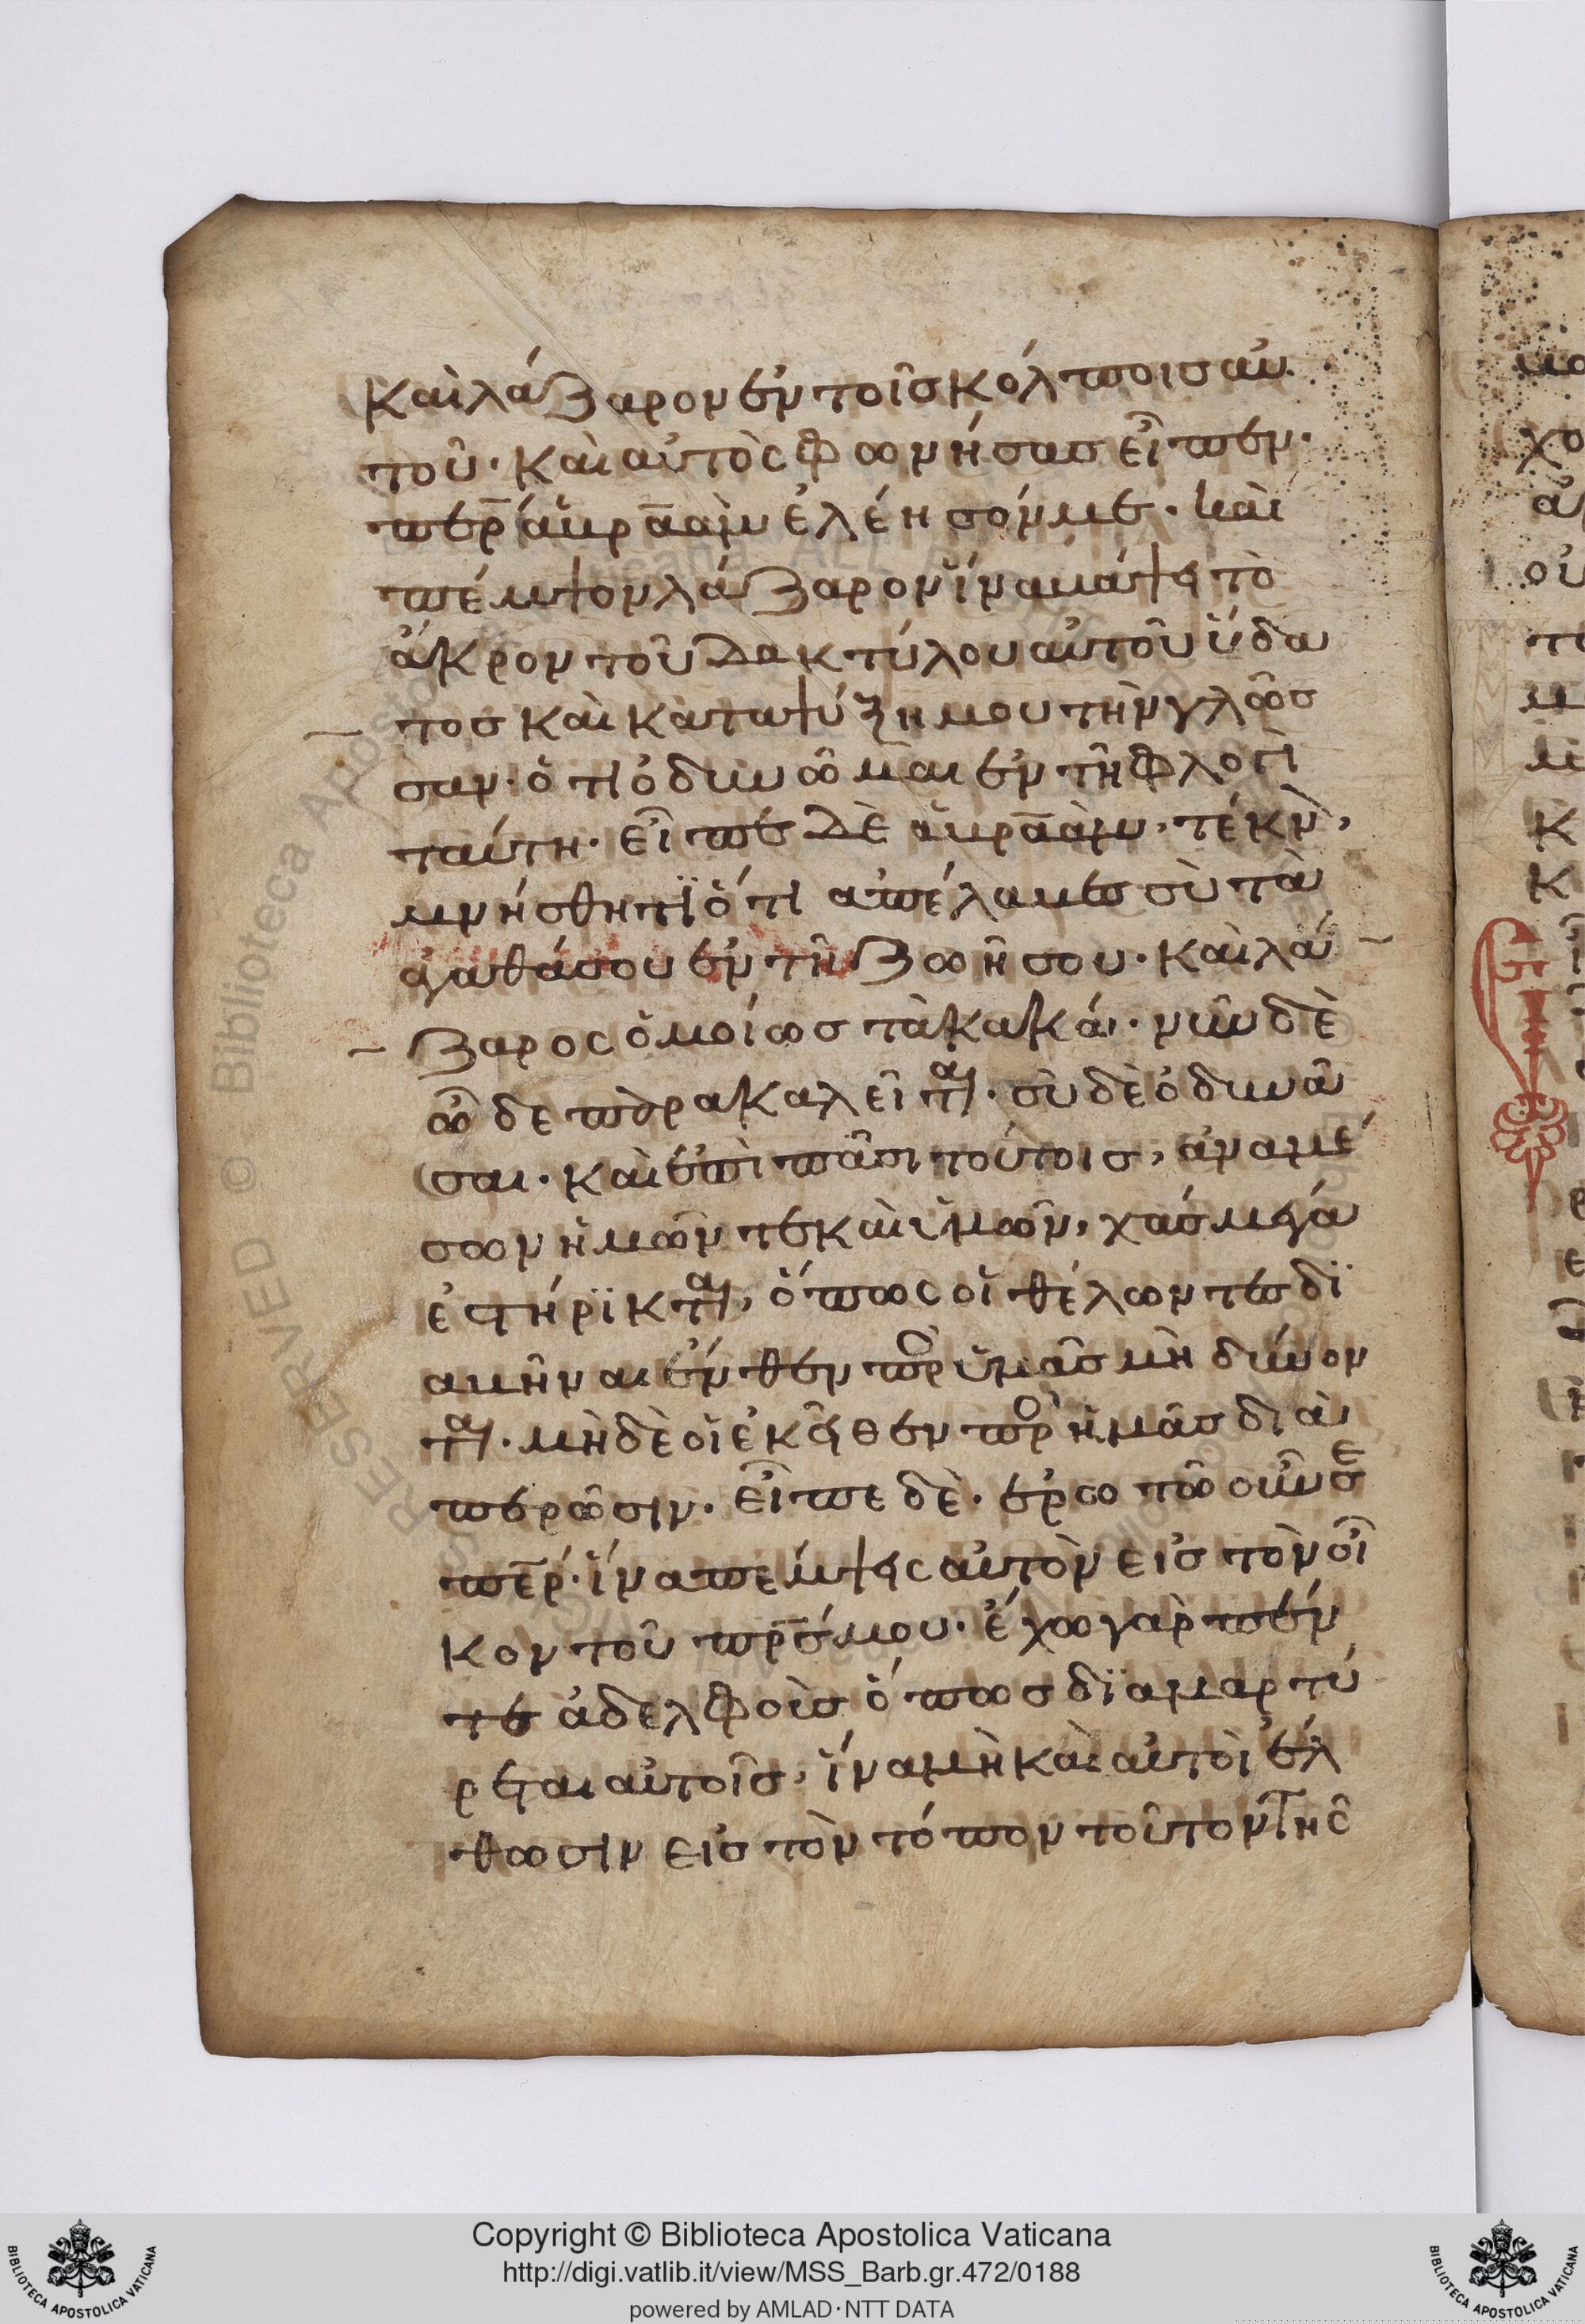 καὶ λάζαρον ἐν τοῖς κόλποις αὐ
τοῦ· καὶ αὐτὸς φωνήσας εἶπεν·
περ ἁβραὰμ ἐλέησόν με· καὶ
πέμψον λάζαρον ἵνα βάψει τὸ
ἄκρον τοῦ δακτύλου αὐτοῦ ὕδα
τος καὶ καταψύξη μου τὴν γλῶσ
σαν· ὅτι ὀδυνῶμαι ἐν τῆ φλογὶ
ταύτη· εἶπε δὲ ἁβραὰμ· τέκν,
μνήσθητϊ ὅτι απέλαβες σὺ τὰ
ἀγαθά σου ἐν τῆ ζωῆ σου· καὶ λά
ζαρος ὁμοίως τὰ κακά· νῦν δὲ
ὧδε παρακαλεῖται· σὺ δὲ ὀδυνᾶ
σαι· καὶ ἐπὶ πᾶσι τούτοις, ἀναμέ
σων ἡμῶν τε καὶ ὑμῶν, χάσμεγά
ἐστήρϊκται, ὅπως οἱ θέλωντες δϊ
αβῆναι ἔνθεν πρὸ ὑμᾶς μὴ δύνον
ται· μὴδὲ οἱ ἐκεῖθεν πρὸ ἡμᾶς δϊὰ
περῶσιν· εἶπε δὲ· ἐρωτῶ οὖν σε
περ· ἵνα πεμψεις αὐτὸν εἰς τὸν οἶ
κον τοῦ πρς μου· ἔχω γὰρ πέν
τε ἀδελφοὺς ὅπως δϊαμαρτύ
ρεται αὐτοῖς, ἵνα μὴ καὶ αὐτοὶ ἔλ
θωσιν εἰς τὸν τόπον τοῦτον τῆς
Copyright © Biblioteca Apostolica Vaticana
http://digi.vatlib.it/view/MSS_Barb.gr.472/0188
powered by AMLAD·NTT DATA